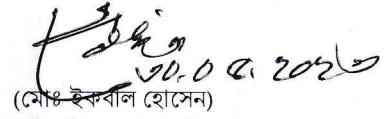 ৩০.০৫.২০২৩
(মোঃ ইকবাল হোসেন)